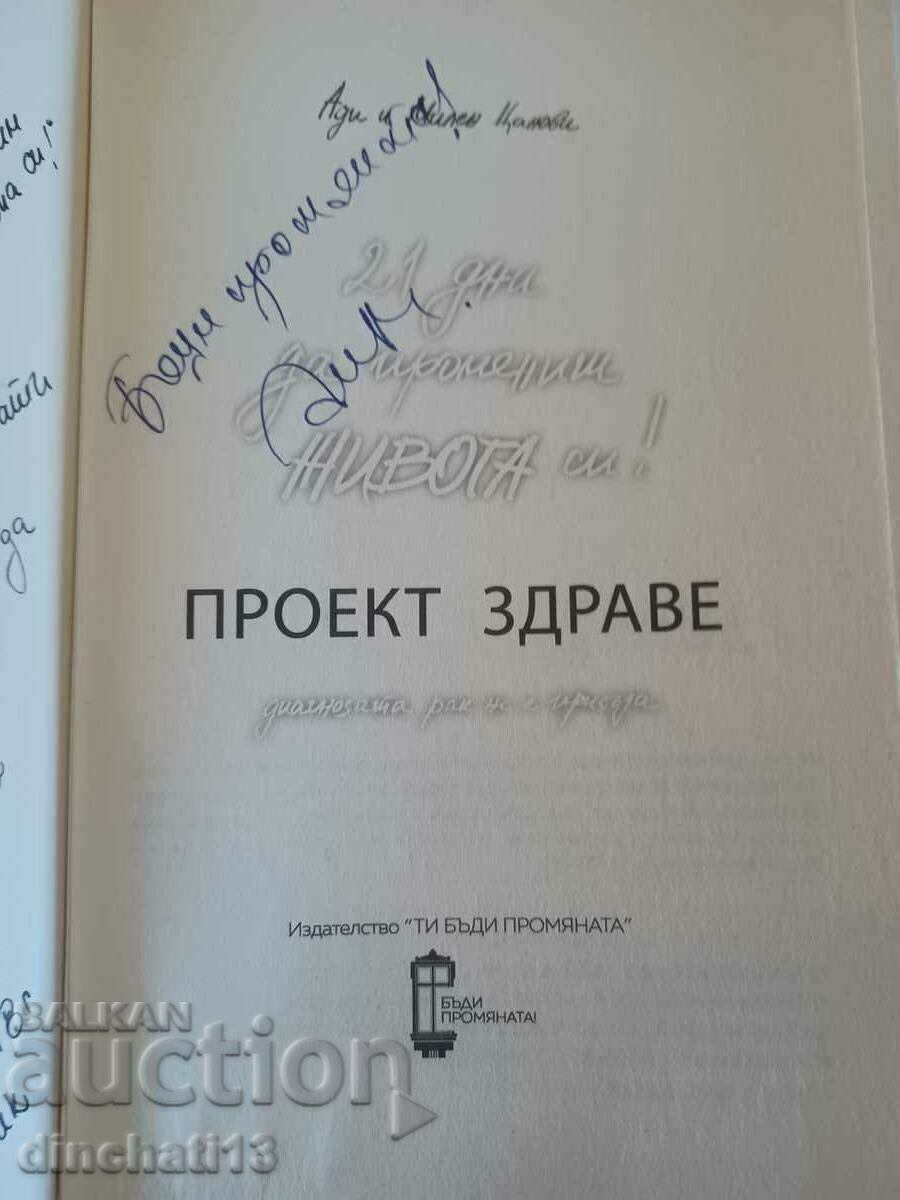 Ади и Милен Цалови
Бъди промяната!
21 дни
да промениш
ЖИВОТА си!
ПРОЕКТ ЗДРАВЕ
диагнозата рак не е присъда
Издателство "ТИ БЪДИ ПРОМЯНАТА"
БЪДИ
ПРОМЯНАТА!
си!
да
BALKAN
auction
dinchati13